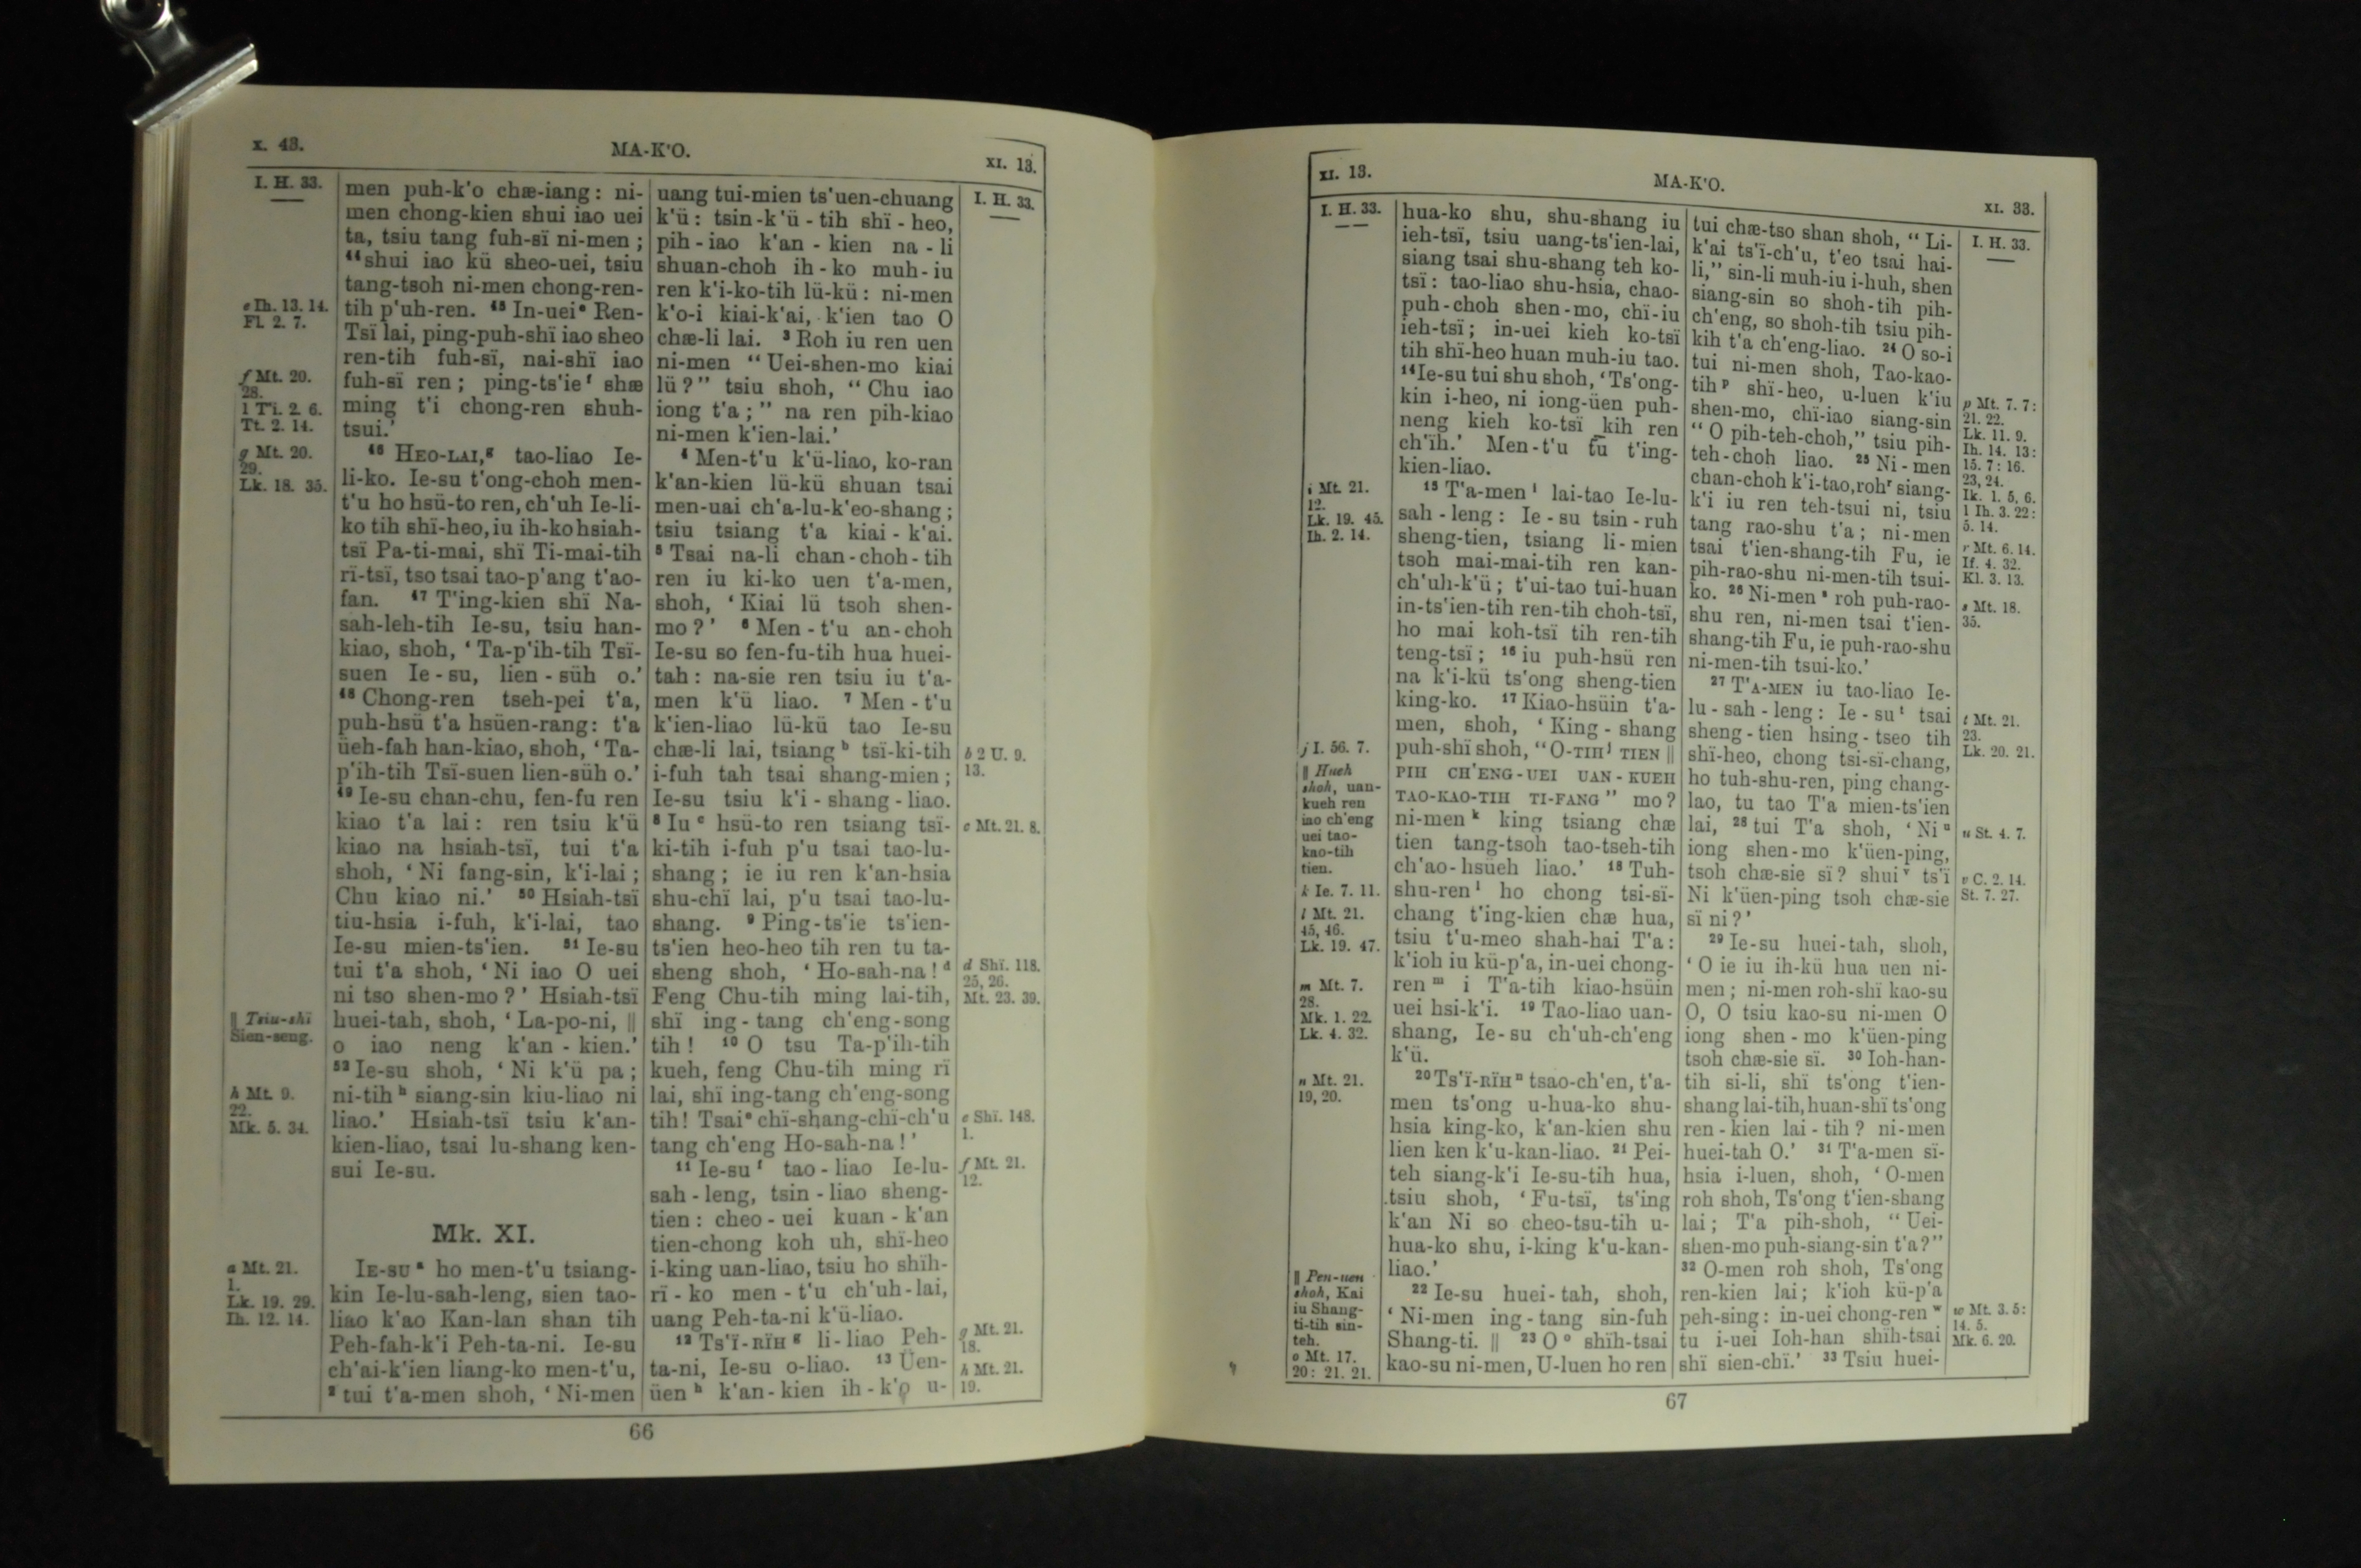 x. 43.
MA-K'O.
XI. 13.
I. H. 33.
e Ih. 13. 14.
Fl. 2. 7.
f Mt. 20.
28.
1 Ti. 2. 6.
Tt. 2. 14.
g Mt. 20.
29.
Lk. 18. 35.
|| Tsiu-shï
Sien-seng.
h Mt. 9.
22.
Mk. 5. 34.
a Mt. 21.
1.
Lk. 19. 29.
Ih. 12. 14.
men puh-k'o chæ-iang: ni-
men chong-kien shui iao uei
ta, tsiu tang fuh-sï ni-men;
44 shui iao kü sheo-uei, tsiu
tang-tsoh ni-men chong-ren-
tih p'uh-ren. 45 In-uei e Ren-
Tsï lai, ping-puh-shï iao sheo
ren-tih fuh-sï, nai-shï iao
fuh-sï ren; ping-ts'ie f shæ
ming t'i chong-ren shuh-
tsui.'
46 HEO-LAI, g tao-liao Ie-
li-ko. Ie-su t'ong-choh men-
t'u ho hsü-to ren, ch'uh Ie-li-
ko tih shï-heo, iu ih-ko hsiah-
tsï Pa-ti-mai, shï Ti-mai-tih
rï-tsï, tso tsai tao-p'ang t'ao-
fan. 47 T'ing-kien shï Na-
sah-leh-tih Ie-su, tsiu han-
kiao, shoh, 'Ta-p'ih-tih Tsï-
suen Ie-su, lien-süh o.'
48 Chong-ren tseh-pei t'a,
puh-hsü t'a hsüen-rang: t'a
üeh-fah han-kiao, shoh, 'Ta-
p'ih-tih Tsï-suen lien-süh o.'
49 Ie-su chan-chu, fen-fu ren
kiao t'a lai: ren tsiu k'ü
kiao na hsiah-tsï, tui t'a
shoh, 'Ni fang-sin, k'i-lai;
Chu kiao ni.' 50 Hsiah-tsï
tiu-hsia i-fuh, k'i-lai, tao
Ie-su mien-ts'ien. 51 Ie-su
tui t'a shoh, 'Ni iao O uei
ni tso shen-mo?' Hsiah-tsï
huei-tah, shoh, 'La-po-ni, ||
o iao neng k'an-kien.'
52 Ie-su shoh, 'Ni k'ü pa;
ni-tih h siang-sin kiu-liao ni
liao.' Hsiah-tsï tsiu k'an-
kien-liao, tsai lu-shang ken-
sui Ie-su.
Mk. XI.
IE-SU a ho men-t'u tsiang-
kin Ie-lu-sah-leng, sien tao-
liao k'ao Kan-lan shan tih
Peh-fah-k'i Peh-ta-ni. Ie-su
ch'ai-k'ien liang-ko men-t'u,
2 tui t'a-men shoh, 'Ni-men
uang tui-mien ts'uen-chuang
k'ü: tsin-k'ü-tih shï-heo,
pih-iao k'an-kien na-li
shuan-choh ih-ko muh-iu
ren k'i-ko-tih lü-kü: ni-men
k'o-i kiai-k'ai, k'ien tao O
chæ-li lai. 3 Roh iu ren uen
ni-men "Uei-shen-mo kiai
lü?" tsiu shoh, "Chu iao
iong t'a;" na ren pih-kiao
ni-men k'ien-lai.'
4 Men-t'u k'ü-liao, ko-ran
k'an-kien lü-kü shuan tsai
men-uai ch'a-lu-k'eo-shang;
tsiu tsiang t'a kiai-k'ai.
5 Tsai na-li chan-choh-tih
ren iu ki-ko uen t'a-men,
shoh, 'Kiai lü tsoh shen-
mo?' 6 Men-t'u an-choh
Ie-su so fen-fu-tih hua huei-
tah: na-sie ren tsiu iu t'a-
men k'ü liao. 7 Men-t'u
k'ien-liao lü-kü tao Ie-su
chæ-li lai, tsiang b tsï-ki-tih
i-fuh tah tsai shang-mien;
Ie-su tsiu k'i-shang-liao.
8 Iu c hsü-to ren tsiang tsï-
ki-tih i-fuh p'u tsai tao-lu-
shang; ie iu ren k'an-hsia
shu-chï lai, p'u tsai tao-lu-
shang. 9 Ping-ts'ie ts'ien-
ts'ien heo-heo tih ren tu ta-
sheng shoh, 'Ho-sah-na! d
Feng Chu-tih ming lai-tih,
shï ing-tang ch'eng-song
tih! 10 O tsu Ta-p'ih-tih
kueh, feng Chu-tih ming rï
lai, shï ing-tang ch'eng-song
tih! Tsai e chï-shang-chï-ch'u
tang ch'eng Ho-sah-na!'
11 Ie-su f tao-liao Ie-lu-
sah-leng, tsin-liao sheng-
tien: cheo-uei kuan-k'an
tien-chong koh uh, shï-heo
i-king uan-liao, tsiu ho shïh-
rï-ko men-t'u ch'uh-lai,
uang Peh-ta-ni k'ü-liao.
12 TS'Ï-RÏH g li-liao Peh-
ta-ni, Ie-su o-liao. 13 Üen-
üen h k'an-kien ih-k'o u-
I. H. 33.
b 2 U. 9.
13.
c Mt. 21. 8.
d Shï. 118.
25, 26.
Mt. 23. 39.
e Shï. 148.
1.
f Mt. 21.
12.
g Mt. 21.
18.
h Mt. 21.
19.
66
XI. 13.
MA-K'O.
XI. 33.
I. H. 33.
i Mt. 21.
12.
Lk. 19. 45.
Ih. 2. 14.
j I. 56. 7.
|| Hueh
shoh, uan-
kueh ren
iao ch'eng
uei tao-
kao-tih
tien.
k Ie. 7. 11.
l Mt. 21.
45, 46.
Lk. 19. 47.
m Mt. 7.
28.
Mk. 1. 22.
Lk. 4. 32.
n Mt. 21.
19, 20.
|| Pen-uen
shoh, Kai
iu Shang-
ti-tih sin-
teh.
o Mt. 17.
20: 21. 21.
hua-ko shu, shu-shang iu
ieh-tsï, tsiu uang-ts'ien-lai,
siang tsai shu-shang teh ko-
tsï: tao-liao shu-hsia, chao-
puh-choh shen-mo, chï-iu
ieh-tsï; in-uei kieh ko-tsï
tih shï-heo huan muh-iu tao.
14 Ie-su tui shu shoh, 'Ts'ong-
kin i-heo, ni iong-üen puh-
neng kieh ko-tsï kih ren
ch'ïh.' Men-t'u tu t'ing-
kien-liao.
15 T'a-men i lai-tao Ie-lu-
sah-leng: Ie-su tsin-ruh
sheng-tien, tsiang li-mien
tsoh mai-mai-tih ren kan-
ch'uh-k'ü; t'ui-tao tui-huan
in-ts'ien-tih ren-tih choh-tsï,
ho mai koh-tsï tih ren-tih
teng-tsï; 16 iu puh-hsü ren
na k'i-kü ts'ong sheng-tien
king-ko. 17 Kiao-hsüin t'a-
men, shoh, 'King-shang
puh-shï shoh, "O-TIH j TIEN ||
PIH CH'ENG-UEI UAN-KUEH
TAO-KAO-TIH TI-FANG" mo?
ni-men k king tsiang chæ
tien tang-tsoh tao-tseh-tih
ch'ao-hsüeh liao.' 18 Tuh-
shu-ren l ho chong tsi-sï-
chang t'ing-kien chæ hua,
tsiu t'u-meo shah-hai T'a:
k'ioh iu kü-p'a, in-uei chong-
ren m i T'a-tih kiao-hsüin
uei hsi-k'i. 19 Tao-liao uan-
shang, Ie-su ch'uh-ch'eng
k'ü.
20 TS'Ï-RÏH n tsao-ch'en, t'a-
men ts'ong u-hua-ko shu-
hsia king-ko, k'an-kien shu
lien ken k'u-kan-liao. 21 Pei-
teh siang-k'i Ie-su-tih hua,
tsiu shoh, 'Fu-tsï, ts'ing
k'an Ni so cheo-tsu-tih u-
hua-ko shu, i-king k'u-kan-
liao.'
22 Ie-su huei-tah, shoh,
'Ni-men ing-tang sin-fuh
Shang-ti. || 23 O o shïh-tsai
kao-su ni-men, U-luen ho ren
tui chæ-tso shan shoh, "Li-
k'ai ts'ï-ch'u, t'eo tsai hai-
li," sin-li muh-iu i-huh, shen
siang-sin so shoh-tih pih-
ch'eng, so shoh-tih tsiu pih-
kih t'a ch'eng-liao. 24 O so-i
tui ni-men shoh, Tao-kao-
tih p shï-heo, u-luen k'iu
shen-mo, chï-iao siang-sin
"O pih-teh-choh," tsiu pih-
teh-choh liao. 25 Ni-men
chan-choh k'i-tao, roh r siang-
k'i iu ren teh-tsui ni, tsiu
tang rao-shu t'a; ni-men
tsai t'ien-shang-tih Fu, ie
pih-rao-shu ni-men-tih tsui-
ko. 26 Ni-men s roh puh-rao-
shu ren, ni-men tsai t'ien-
shang-tih Fu, ie puh-rao-shu
ni-men-tih tsui-ko.'
27 T'A-MEN iu tao-liao Ie-
lu-sah-leng: Ie-su t tsai
sheng-tien hsing-tseo tih
shï-heo, chong tsi-sï-chang,
ho tuh-shu-ren, ping chang-
lao, tu tao T'a mien-ts'ien
lai, 28 tui T'a shoh, 'Ni u
iong shen-mo k'üen-ping,
tsoh chæ-sie sï? shui v ts'ï
Ni k'üen-ping tsoh chæ-sie
sï ni?'
29 Ie-su huei-tah, shoh,
'O ie iu ih-kü hua uen ni-
men; ni-men roh-shï kao-su
O, O tsiu kao-su ni-men O
iong shen-mo k'üen-ping
tsoh chæ-sie sï. 30 Ioh-han-
tih si-li, shï ts'ong t'ien-
shang lai-tih, huan-shï ts'ong
ren-kien lai-tih? ni-men
huei-tah O.' 31 T'a-men sï-
hsia i-luen, shoh, 'O-men
roh shoh, Ts'ong t'ien-shang
lai; T'a pih-shoh, "Uei-
shen-mo puh-siang-sin t'a?"
32 O-men roh shoh, Ts'ong
ren-kien lai; k'ioh kü-p'a
peh-sing: in-uei chong-ren w
tu i-uei Ioh-han shïh-tsai
shï sien-chï.' 33 Tsiu huei-
I. H. 33.
p Mt. 7. 7:
21. 22.
Lk. 11. 9.
Ih. 14. 13:
15. 7: 16.
23, 24.
Ik. 1. 5, 6.
1 Ih. 3. 22:
5. 14.
r Mt. 6. 14.
If. 4. 32.
Kl. 3. 13.
s Mt. 18.
35.
t Mt. 21.
23.
Lk. 20. 21.
u St. 4. 7.
v C. 2. 14.
St. 7. 27.
w Mt. 3. 5:
14. 5.
Mk. 6. 20.
67